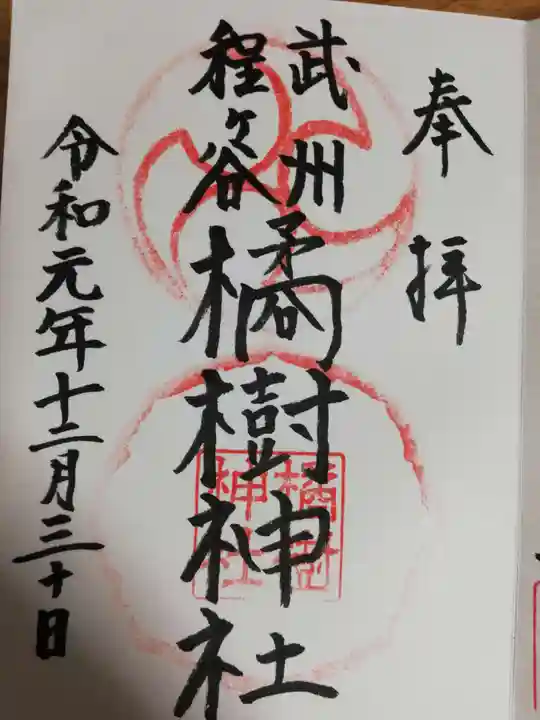 奉拝
武州
程ヶ谷
橘樹神社
令和元年十二月三十日
橘樹
神社